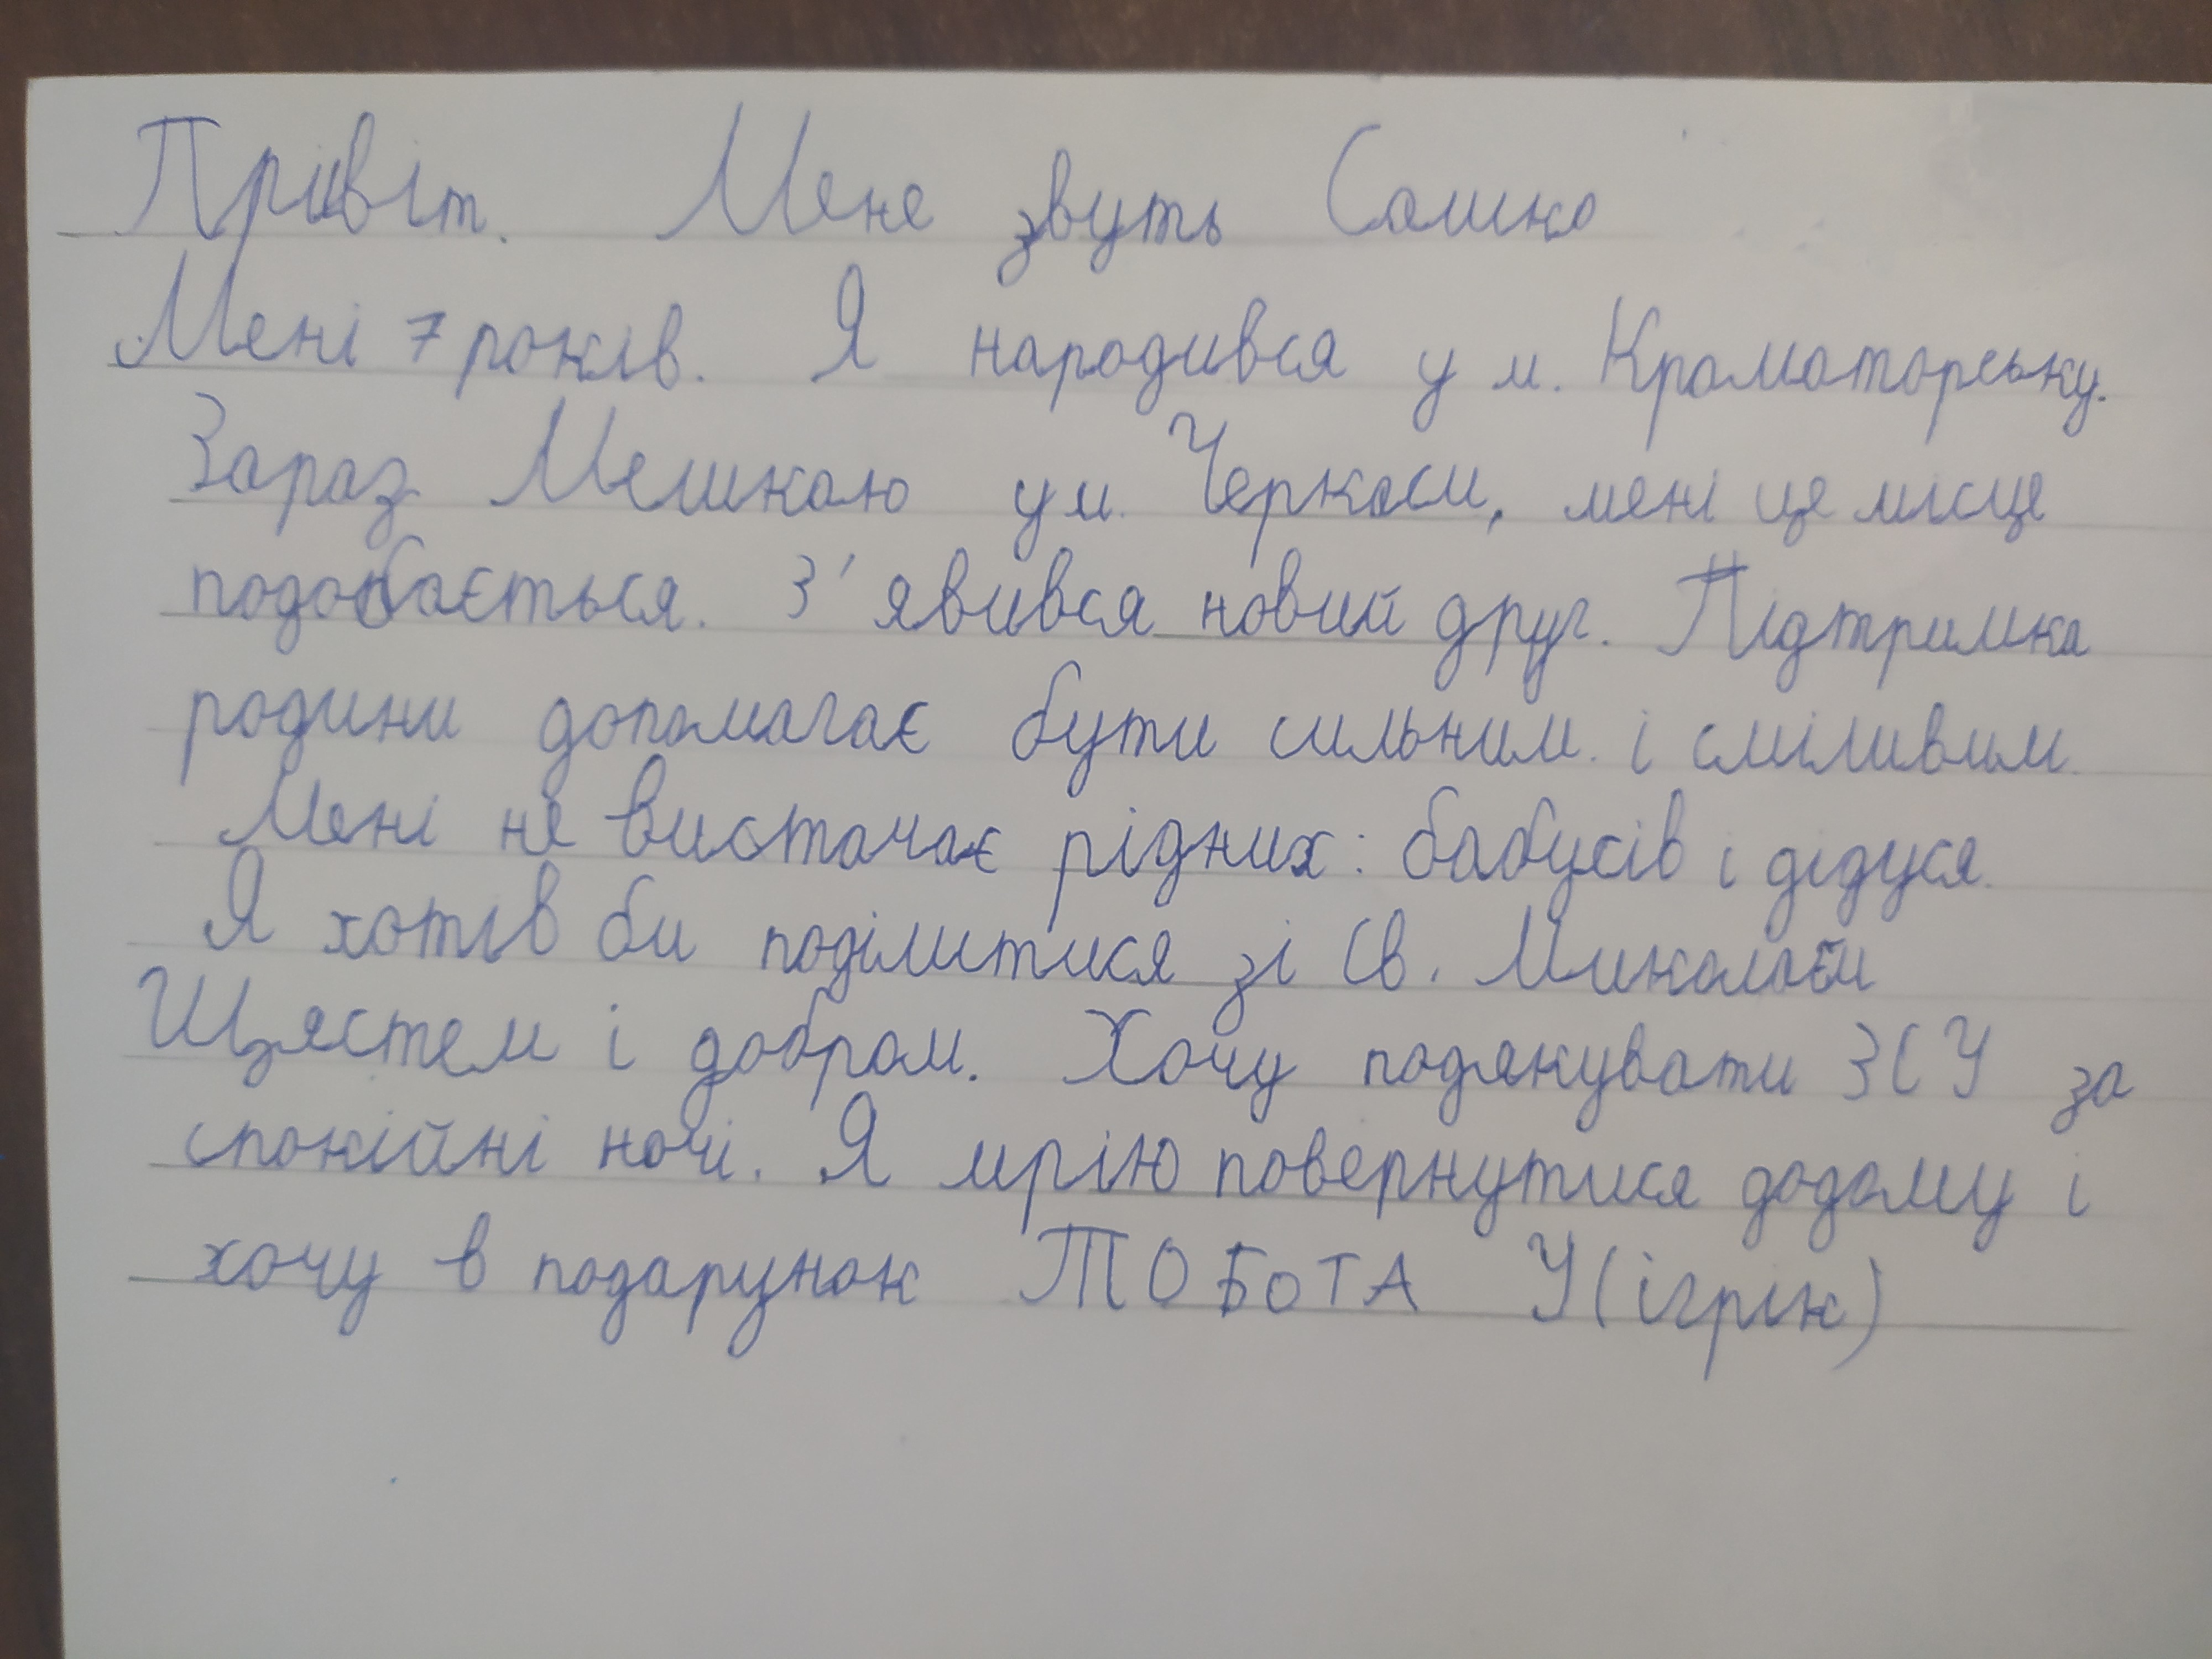 Привіт. Мене звуть Сашко
Мені 7 років. Я народився у м. Краматорську.
Зараз Мешкаю у м. Черкаси, мені це місце
подобається. З'явився новий друг. Підтримка
родини допомагає бути сильним і сміливим.
Мені не вистачає рідних: бабусів і дідуся.
Я хотів би поділитися зі Св. Миколаєм
Щястем і добром. Хочу подякувати ЗСУ за
спокійні ночі. Я мрію повернутися додому і
хочу в подарунок ТОБОТА У (ігрік)